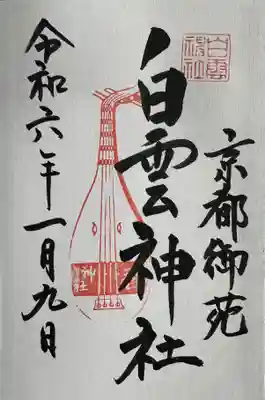 京都御苑
白雲神社
白雲神社
令和六年一月九日